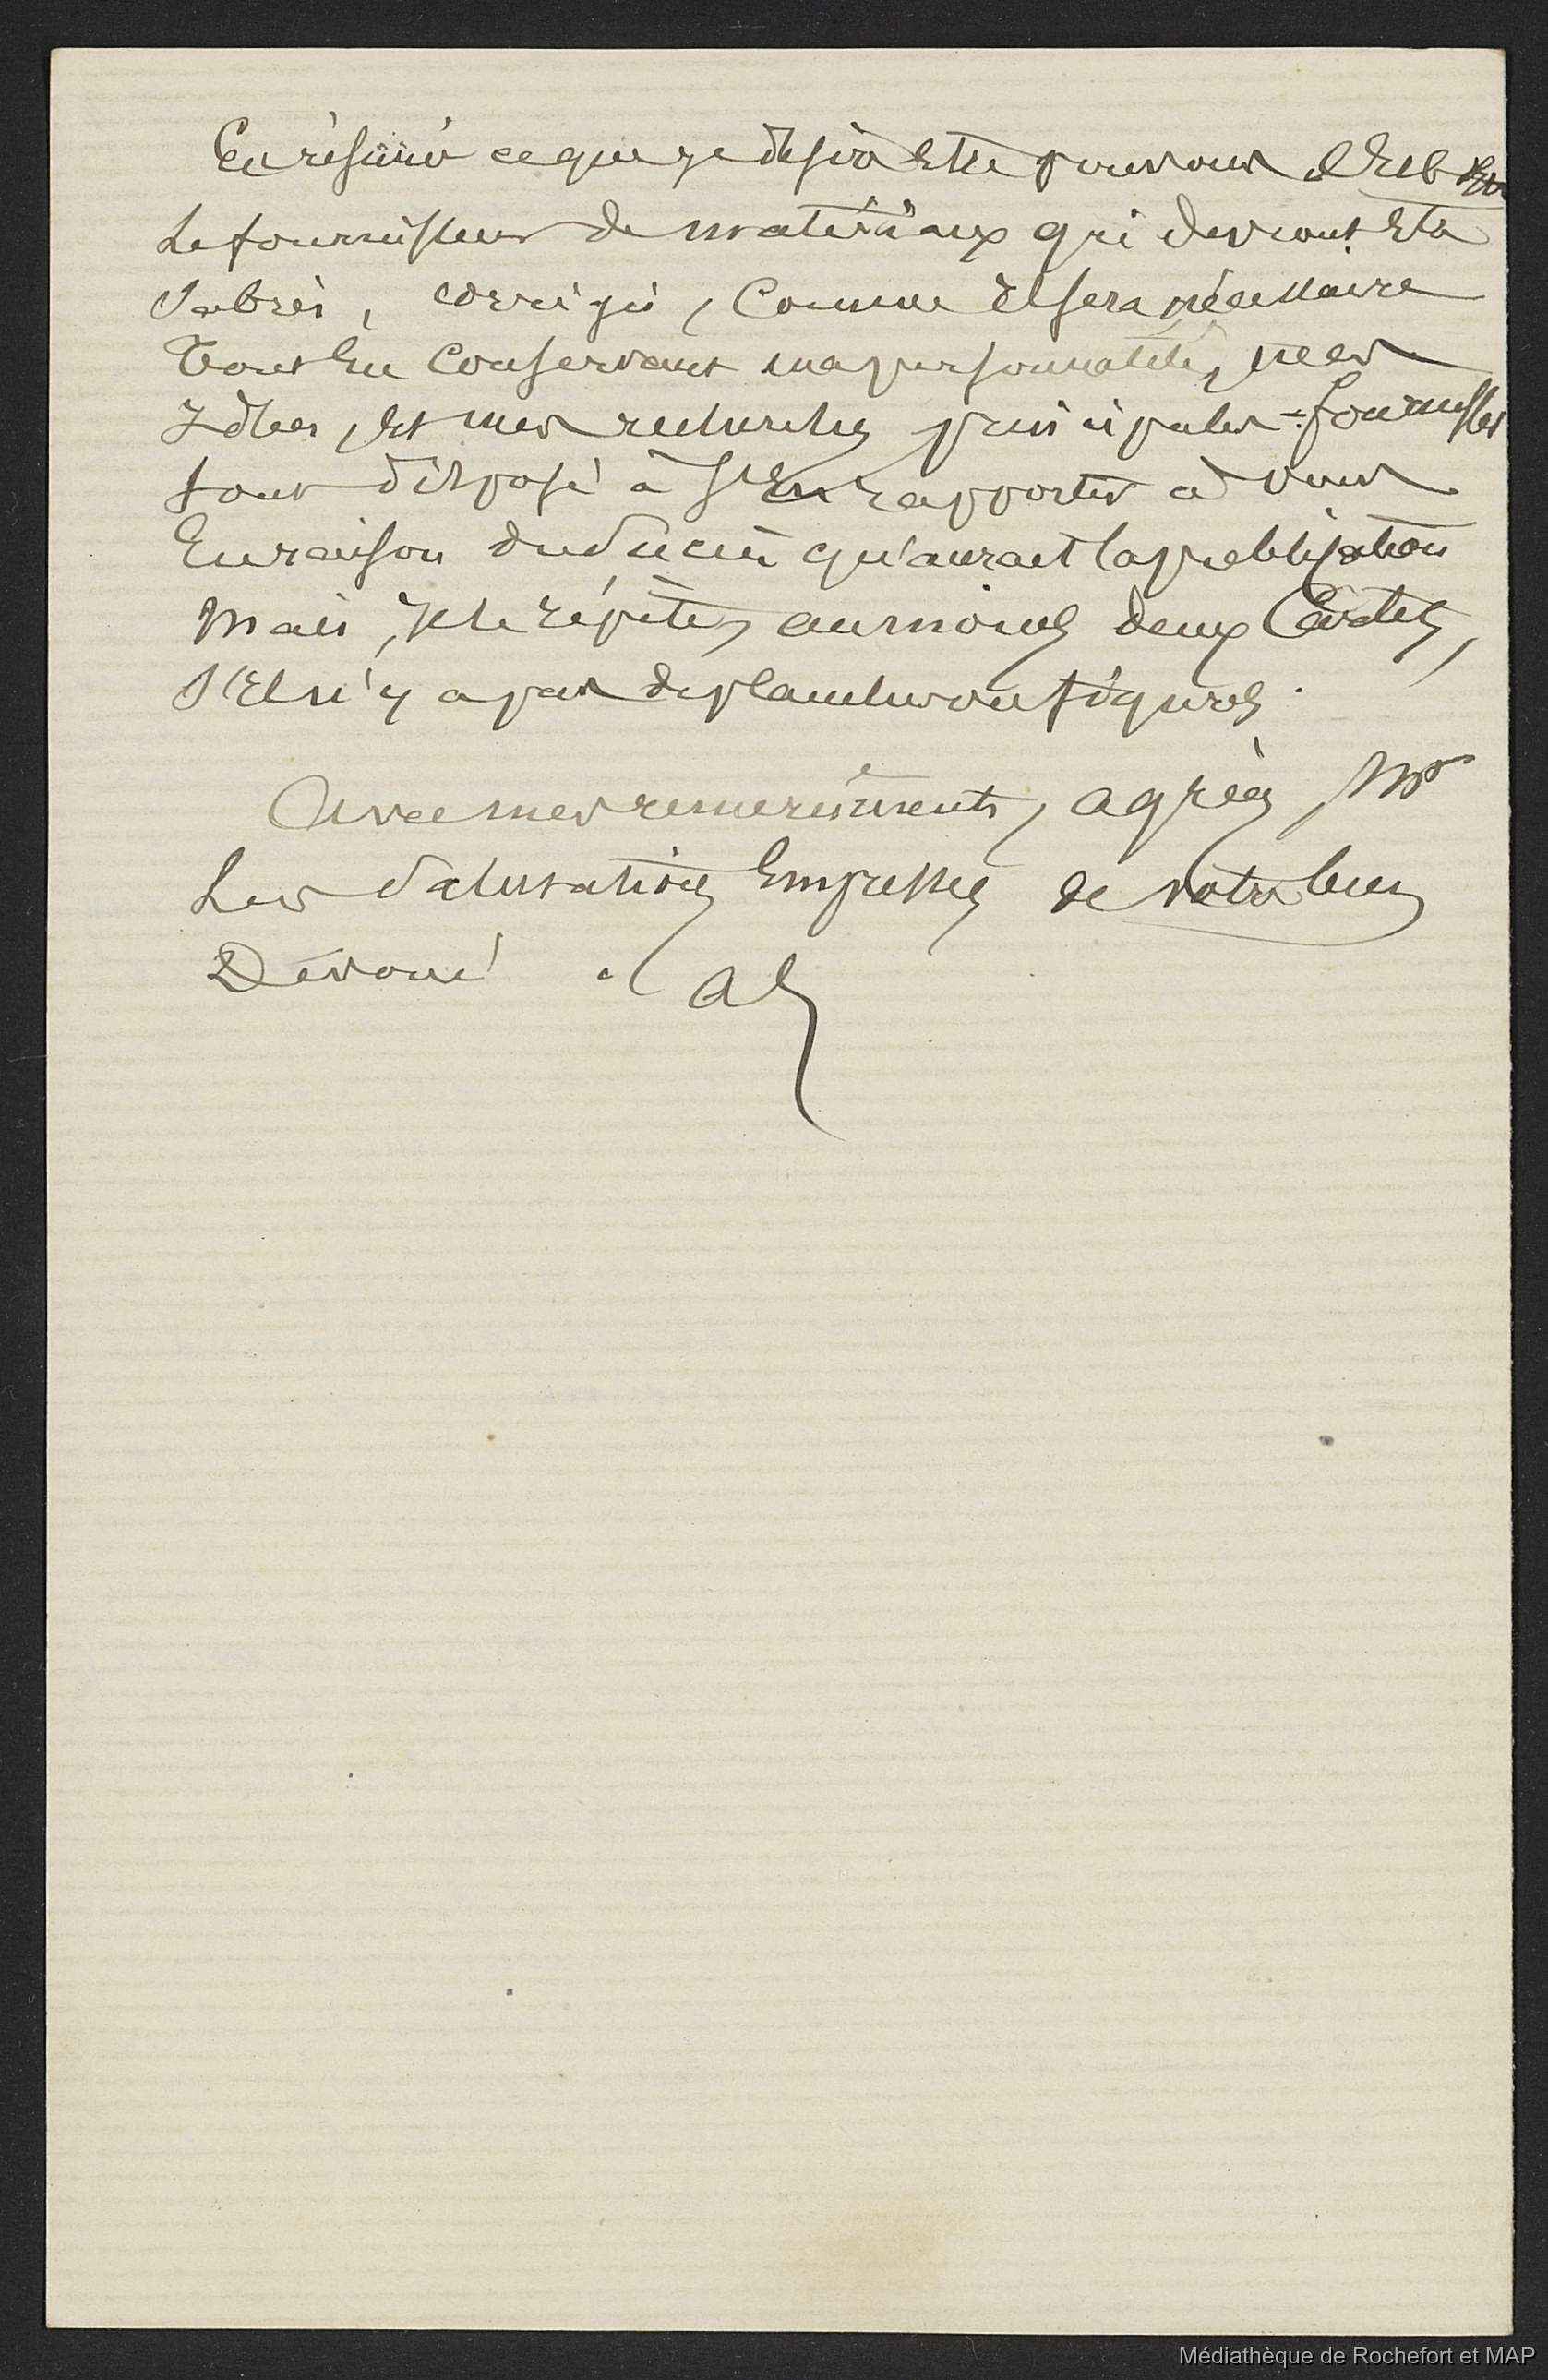 En résumé ce que je desire Etre pour vous C'Est
Le fournisseur de matériaux qui devront Etre
Sabrés, corrigés, Comme Il sera nécessaire
Tout En Conservant ma personnalité, mes
Idées, Et mes recherches principales = fournisseur
tout disposé à s'En rapporter à vous
En raison du Succès qu'aurait la publication
Mais, Je le répète, au moins deux Cartes,
S'Il n'y a pas de planches ou figures.
Avec mes remerciements, agréez Mr
Les Salutations Empressées de votre bien
Dévoué
Médiathèque de Rochefort et MAP